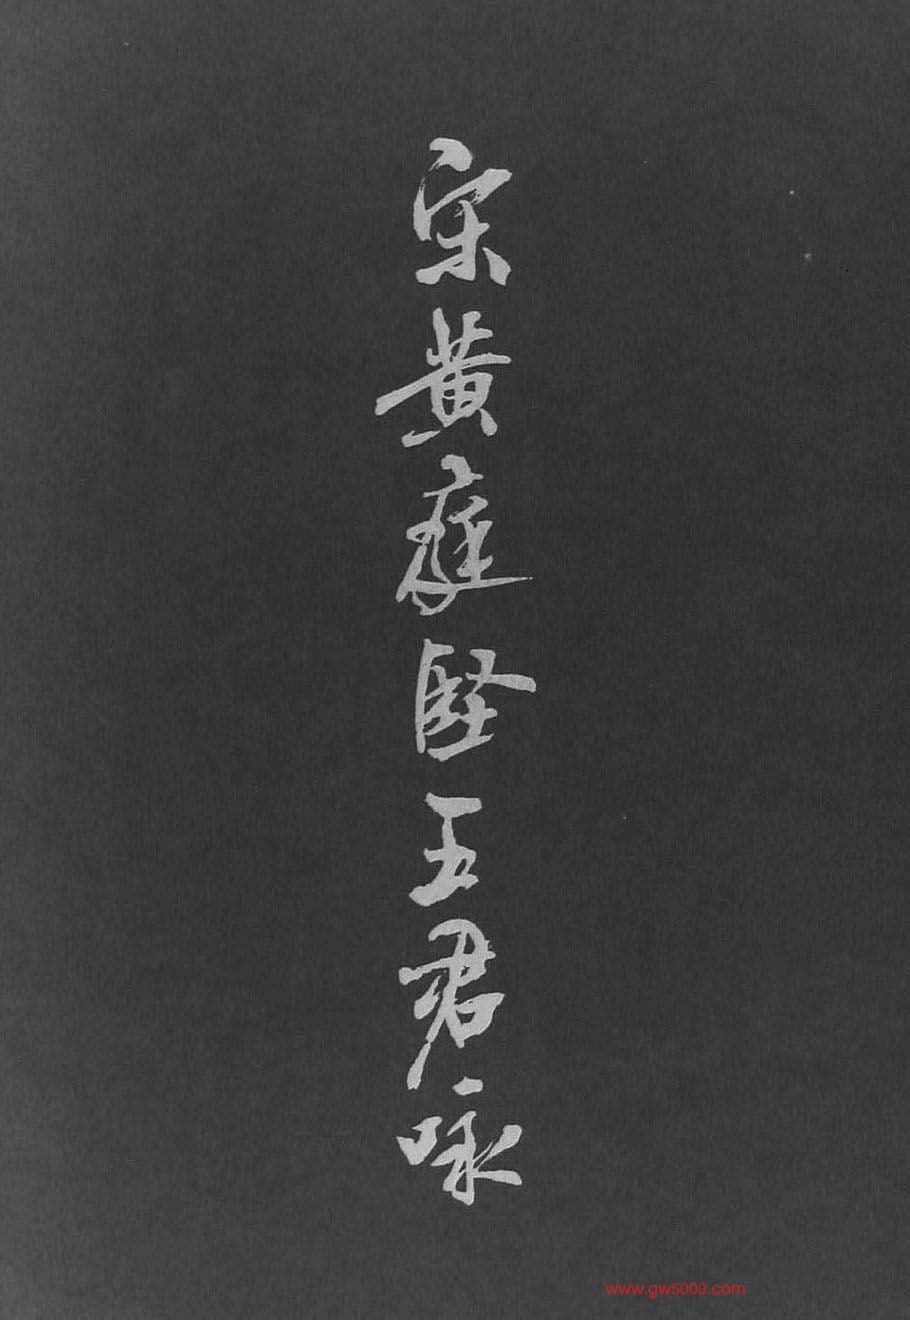 宋黄庭堅五君咏
www.gw5000.com